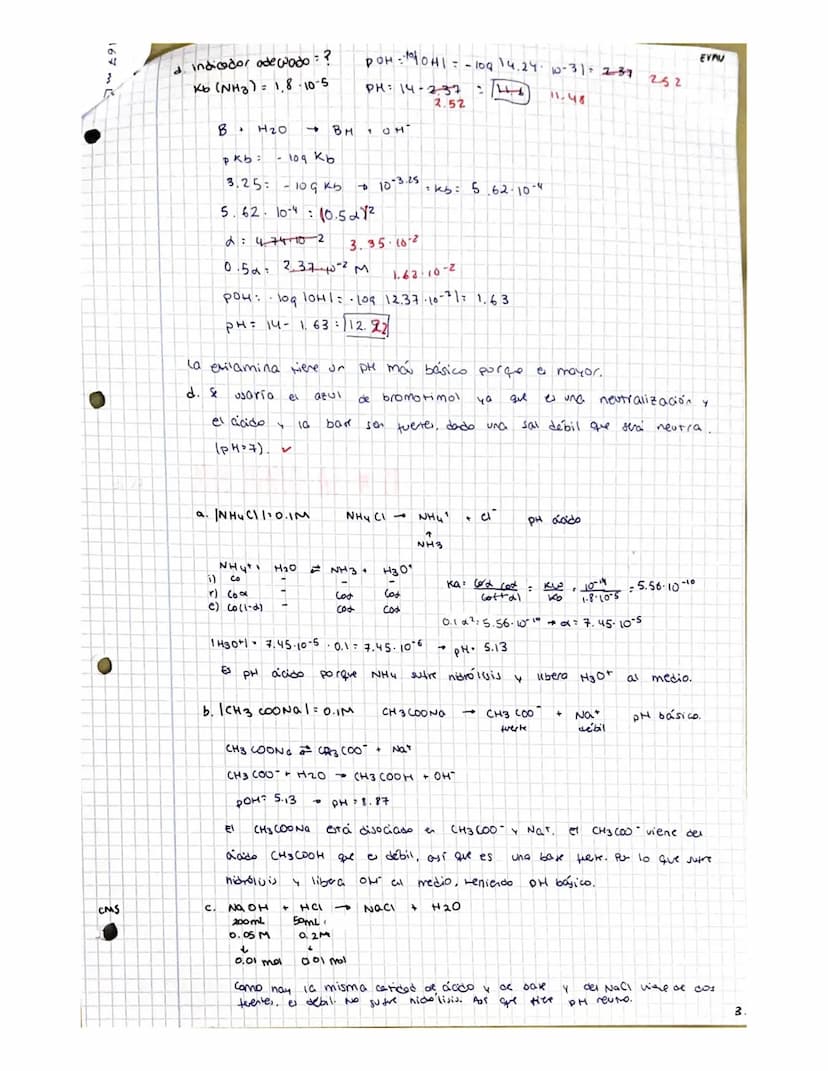 EVAU
d. indicador adecuado = ? pOH = -log |OH| = -log |4.24 · 10-3| = 2.37 2.52
Kb (NH3) = 1,8 · 10-5 pH = 14 - 2.37 = 11.48
2.52
B + H2O → BH + OH-
pKb = -log Kb
3.25 = -log Kb → 10-3.25 = Kb = 5.62·10-4
5.62·10-4 = (0.5α)2
α = 4.74·10-2 3.35·10-2
0.5α = 2.37·10-2 M 1.62·10-2
pOH = -log |OH| = -log |2.37·10-2| = 1.63
pH = 14 - 1.63 = 12.22
La etilamina tiene un pH más básico porque es mayor.
d. Se usaría el azul de bromotimol ya que es una neutralización y
el ácido y la base son fuertes, dado una sal débil que será neutra.
(pH=7). ✓
a. |NH4Cl| = 0.1M NH4Cl → NH4+ + Cl- pH ácido
↑
NH3
NH4+ + H2O ⇌ NH3 + H3O+
i) Co - - -
r) Coα - Coα Coα
e) Co(1-α) - Coα Coα
Ka = Coα Coα / Co(1-α) = Kw / Kb = 10-14 / 1.8·10-5 = 5.56·10-10
0.1α2 = 5.56·10-10 → α = 7.45·10-5
|H3O+| = 7.45·10-5 · 0.1 = 7.45·10-6 → pH = 5.13
Es pH ácido porque NH4 sufre hidrólisis y libera H3O+ al medio.
b. |CH3COONa| = 0.1M CH3COONa → CH3COO- + Na+ pH básico.
fuerte débil
CH3COONa ⇌ CH3COO- + Na+
CH3COO- + H2O → CH3COOH + OH-
pOH = 5.13 → pH = 8.87
El CH3COONa está disociado en CH3COO- y Na+. El CH3COO- viene del
ácido CH3COOH que es débil, así que es una base fuerte. Por lo que sufre
hidrólisis y libera OH- al medio, teniendo pH básico.
CMS
c. NaOH + HCl → NaCl + H2O
200mL 50mL
0.05M 0.2M
↓ ↓
0.01 mol 0.01 mol
Como hay la misma cantidad de ácido y de base y del NaCl viene de dos
fuertes, es débil. No sufre hidrólisis. Así que tiene pH neutro.
3.